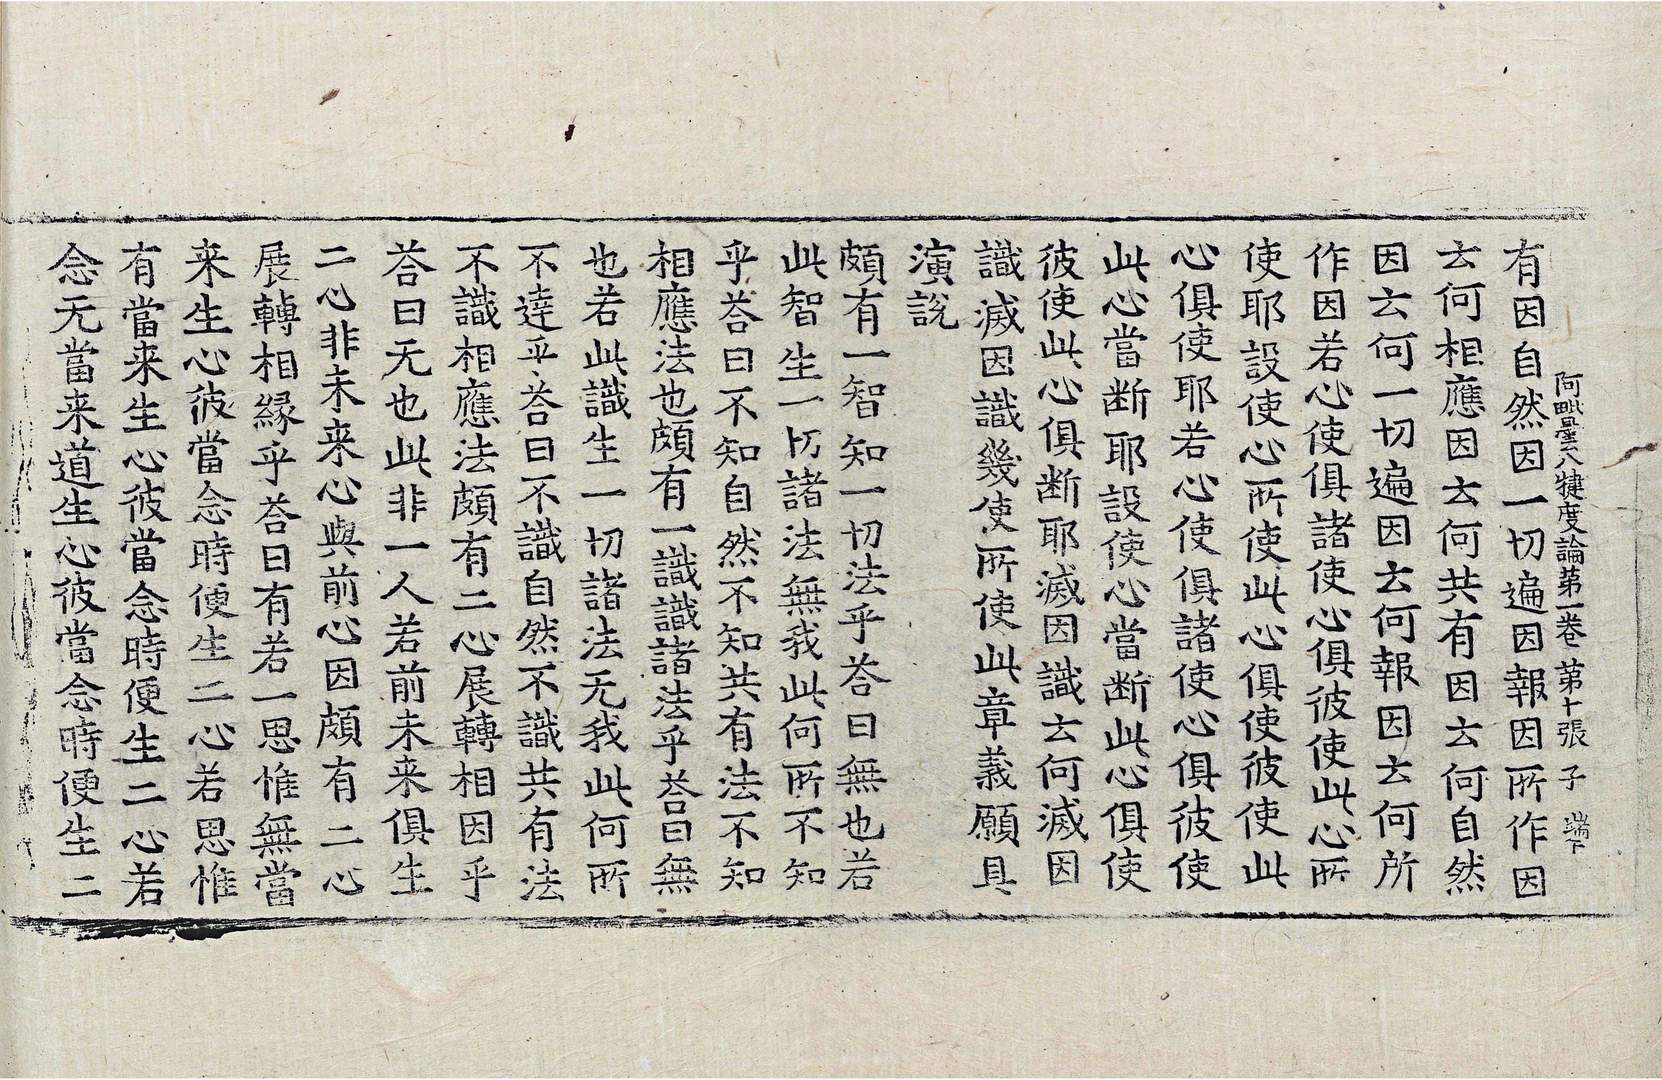 阿毗曇八犍度論第一卷 第十張 子
有因自然因一切遍因報因所作因
云何相應因云何共有因云何自然
因云何一切遍因云何報因云何所
作因若心使俱諸使心俱彼使此心所
使耶設使心所使此心俱使彼使此
心俱使耶若心使俱諸使心俱彼使
此心當断耶設使心當断此心俱使
彼使此心俱断耶滅因識云何滅因
識滅因識幾使所使此章義願具
演說
頗有一智知一切法乎荅曰無也若
此智生一切諸法無我此何所不知
乎荅曰不知自然不知共有法不知
相應法也頗有一識識諸法乎荅曰無
也若此識生一切諸法无我此何所
不達乎荅曰不識自然不識共有法
不識相應法頗有二心展轉相因乎
荅曰无也此非一人若前未来俱生
二心非未来心與前心因頗有二心
展轉相緣乎荅曰有若一思惟無當
来生心彼當念時便生二心若思惟
有當来生心彼當念時便生二心若
念无當来道生心彼當念時便生二